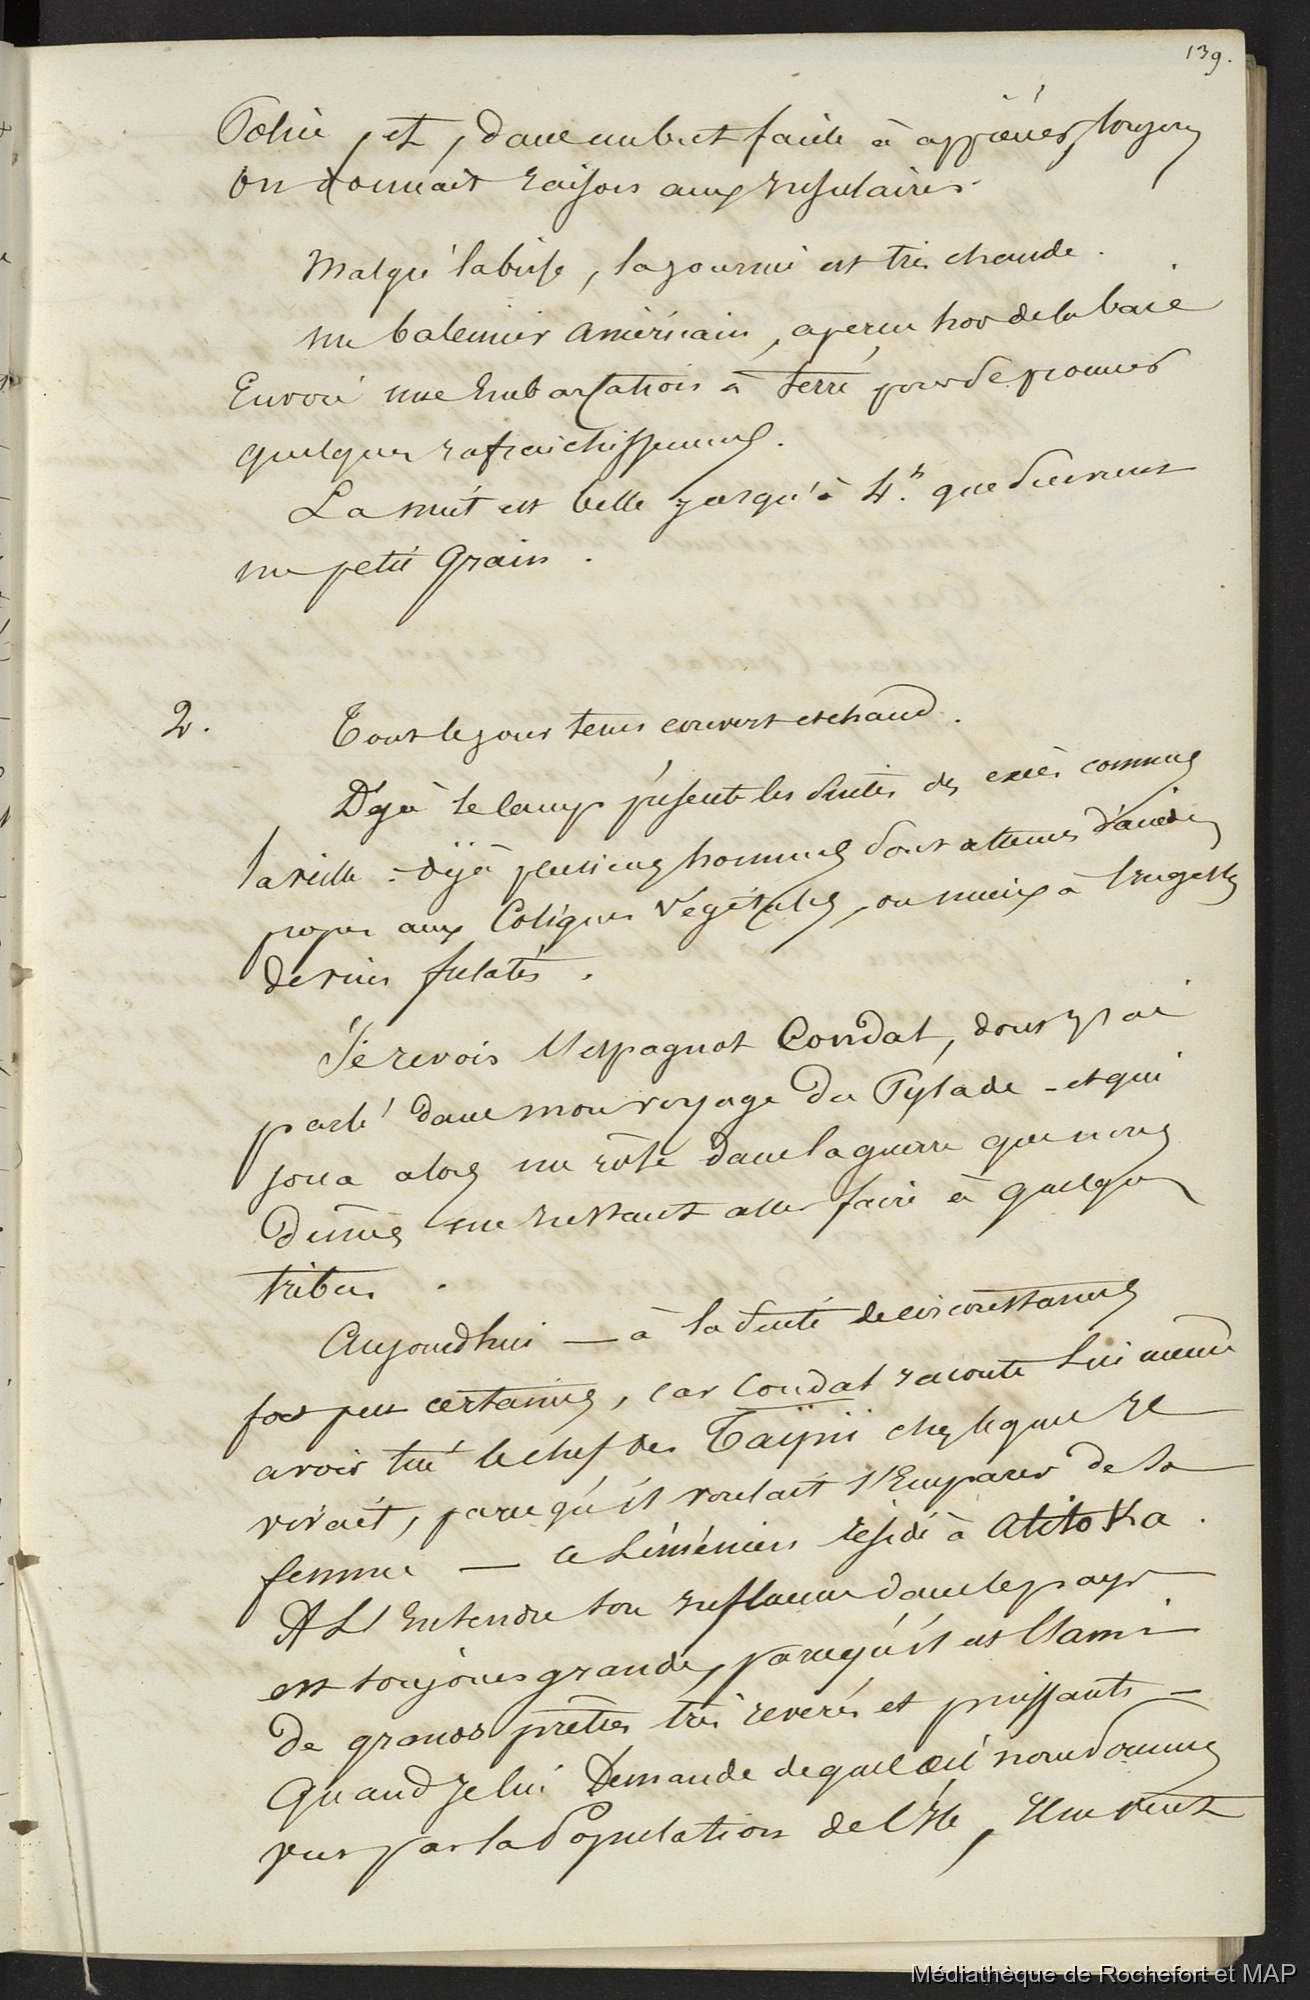 139.
Police, et, dans un but facile à apprécier, toujours
on donnait raison aux insulaires.
Malgré la brise, la journée est très chaude.
un baleinier américain, aperçu hors de la baie
Envoie une Embarcation à terre pour se procurer
quelques rafraichissements.
La nuit est belle jusqu'à 4.h que survient
un petit grain.
2. Tout le jour tems couvert et chaud.
Déjà le camp présente les suites des excès commis
la veille - déjà plusieurs hommes sont atteints d'accidens
propres aux Coliques Végétales, ou mieux à l'ingestion
de vins frelatés.
Je revois l'espagnol Condat, dont j'ai
parlé dans mon voyage du Pylade - et qui
joua alors un rôle dans la guerre que nous
dûmes un instant aller faire à quelques
tribus.
Aujourd'hui — à la suite de circonstances
fort peu certaines, car Condat raconte lui même
avoir tué le chef des Taïpii chez lequel il
vivait, parcequ'il voulait s'Emparer de sa
femme — ce Liménien réside à Atitoka.
A L'Entendre son influence dans le pays
est toujours grande, parcequ'il est l'ami
de grands prêtres très reverés et puissants -
Quand je lui Demande de quel œil nous sommes
vus par la Population de l'Ile, Il me vient
Médiathèque de Rochefort et MAP